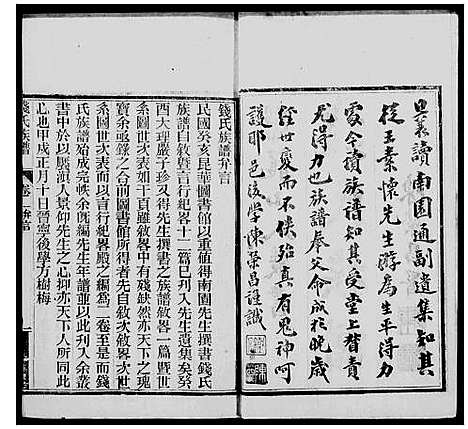 昆褧讀南園通副遺集知其
從王素懷先生游為生平得力
處今讀族譜知其受堂上督責
尤得力也族譜奉父命成於晚歲
經世變而不佚殆真有鬼神呵
護耶 邑後學陳榮昌謹識
錢氏族譜弁言
民國癸亥昆華圖書館以重値得南園先生撰書錢氏
族譜自敘曁言行紀畧十一篇已刋入先生遺集矣癸
酉大理嚴子珍又得先生撰書之族譜敘畧一篇曁世
系圖世次表如干頁雖敘畧中有殘缺然亦天下之瑰
寶余遂錄之合圖書館所得者先自敘次敘畧次世
系圖世次表而以言行紀畧殿之編為二卷至是而錢
氏族譜始成完帙余旣編先生年譜並以此刋入余叢
書中於以見滇人景仰先生之心抑亦天下人所同此
心也甲戌正月十日晉寧後學方樹梅
錢氏族譜 卷一 弁言 一